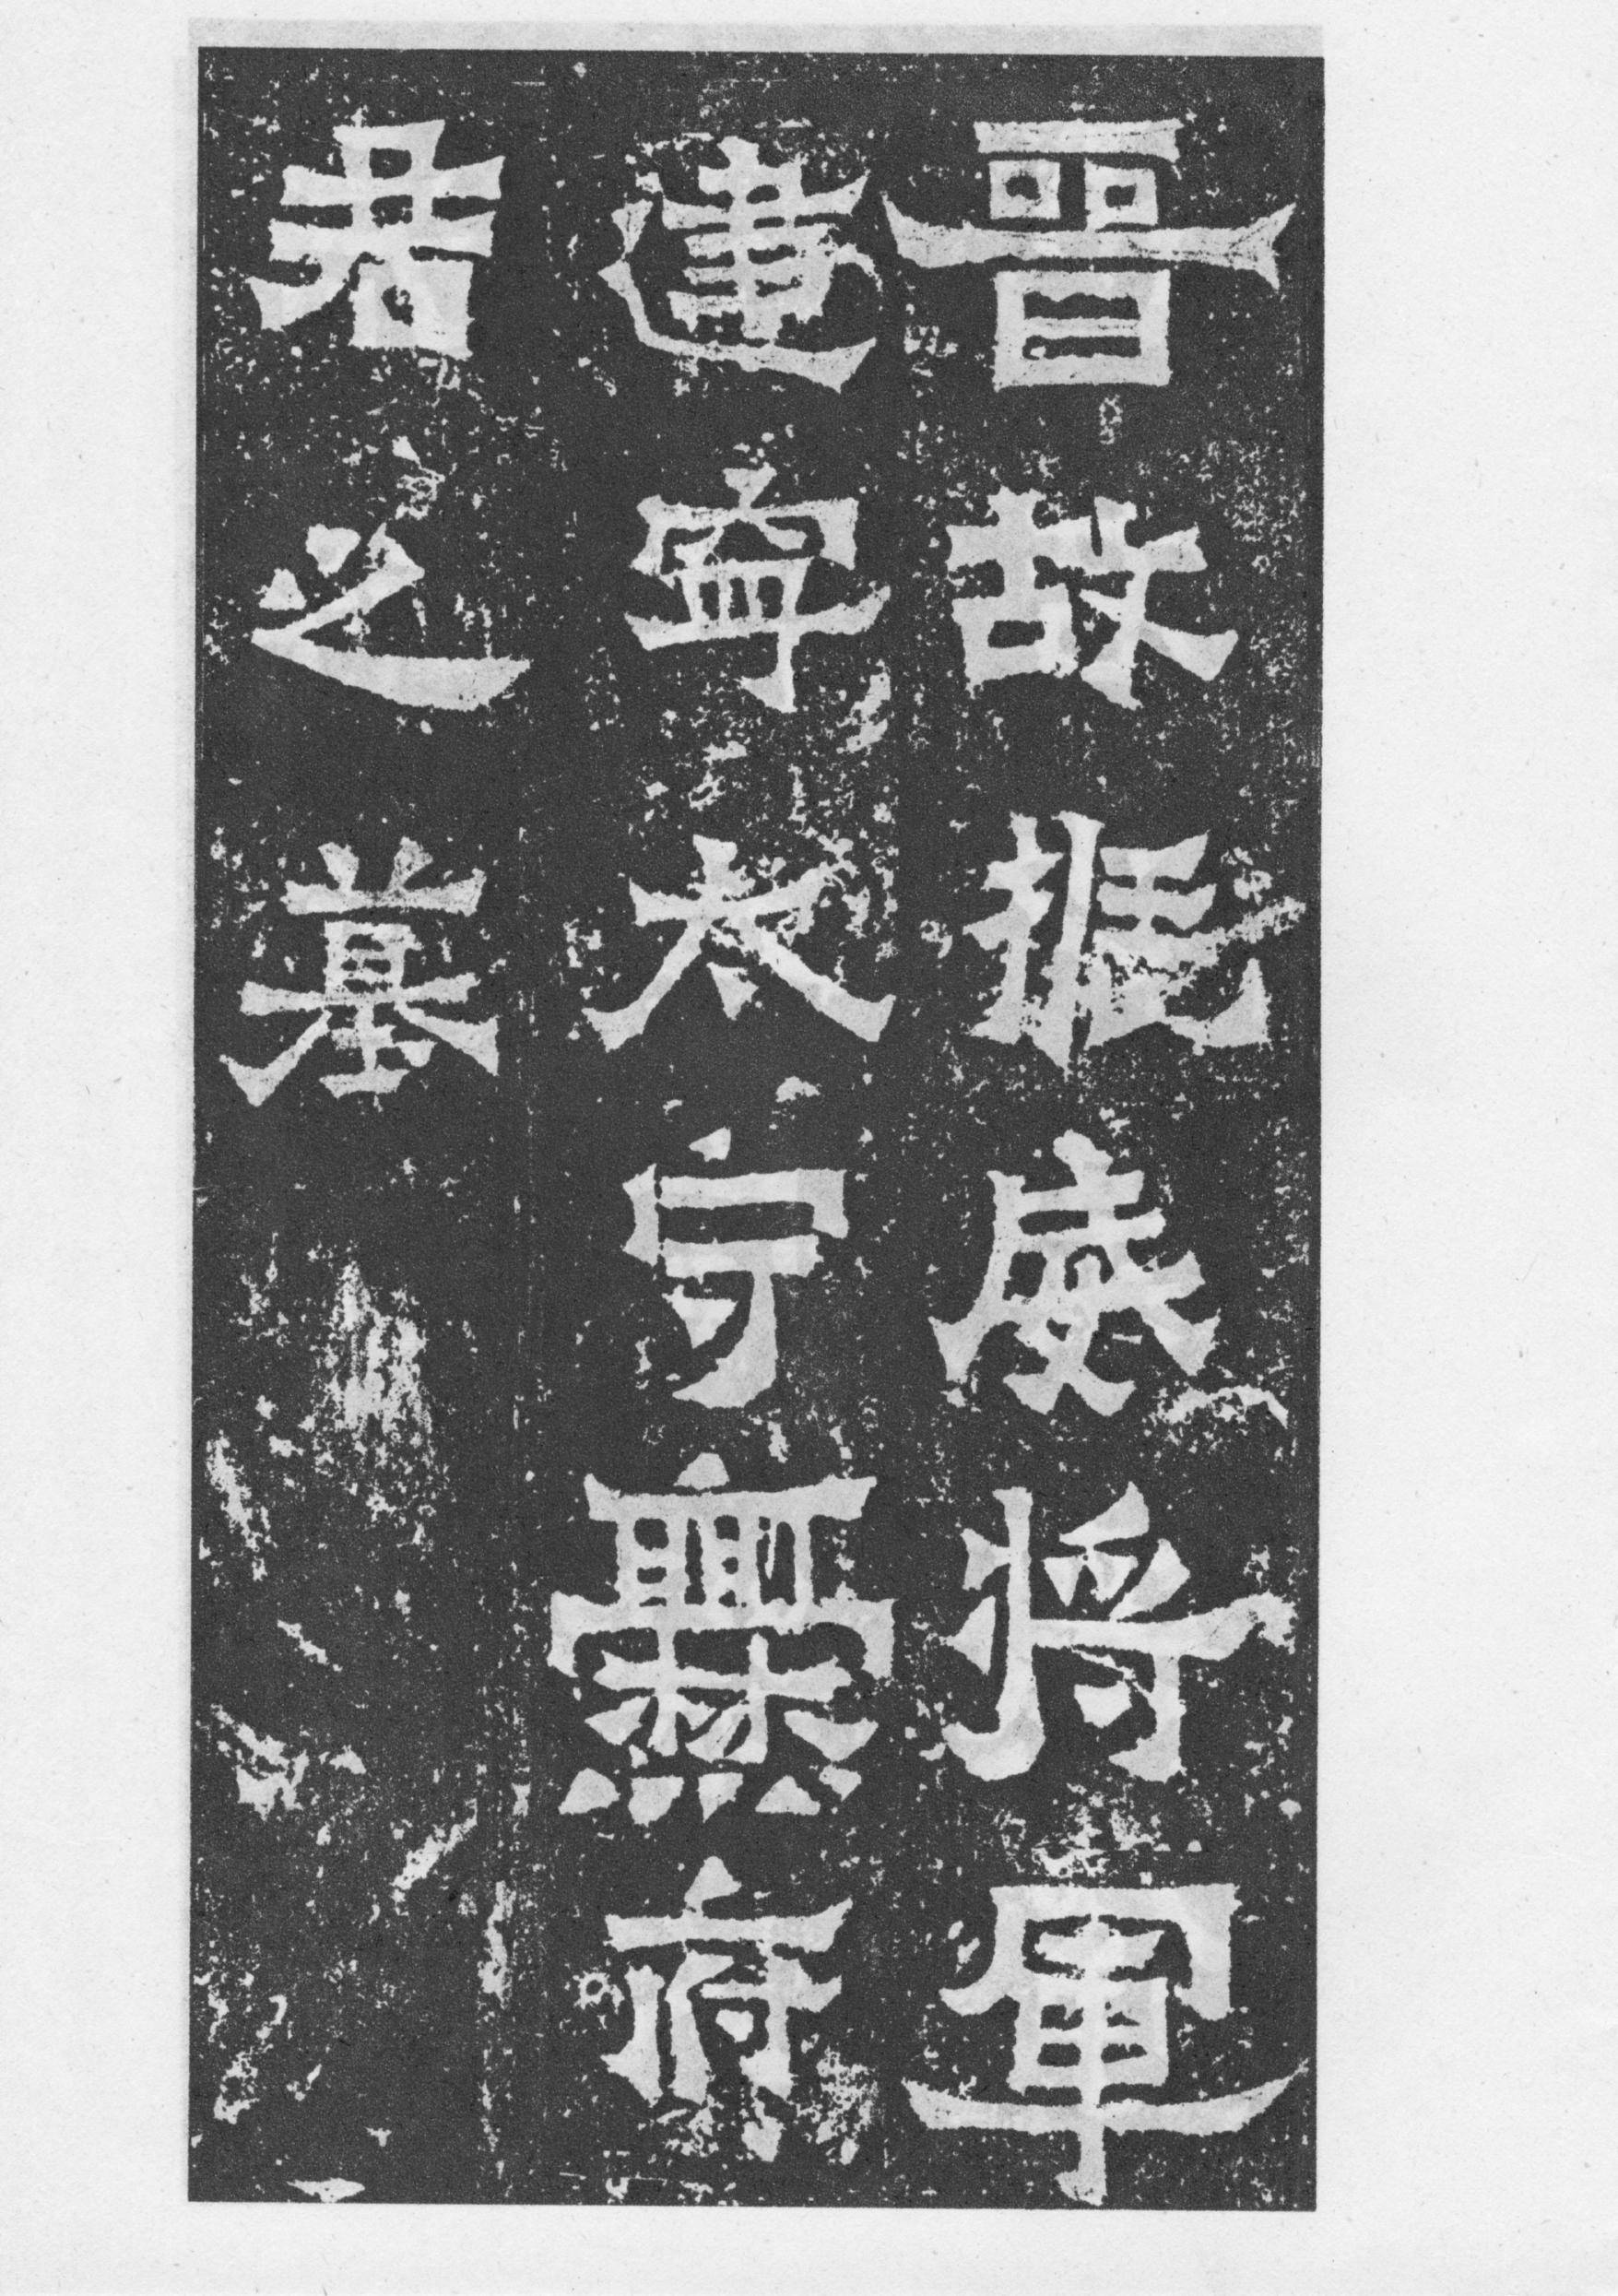 晋故振威將軍
建寧太守爨府
君之墓